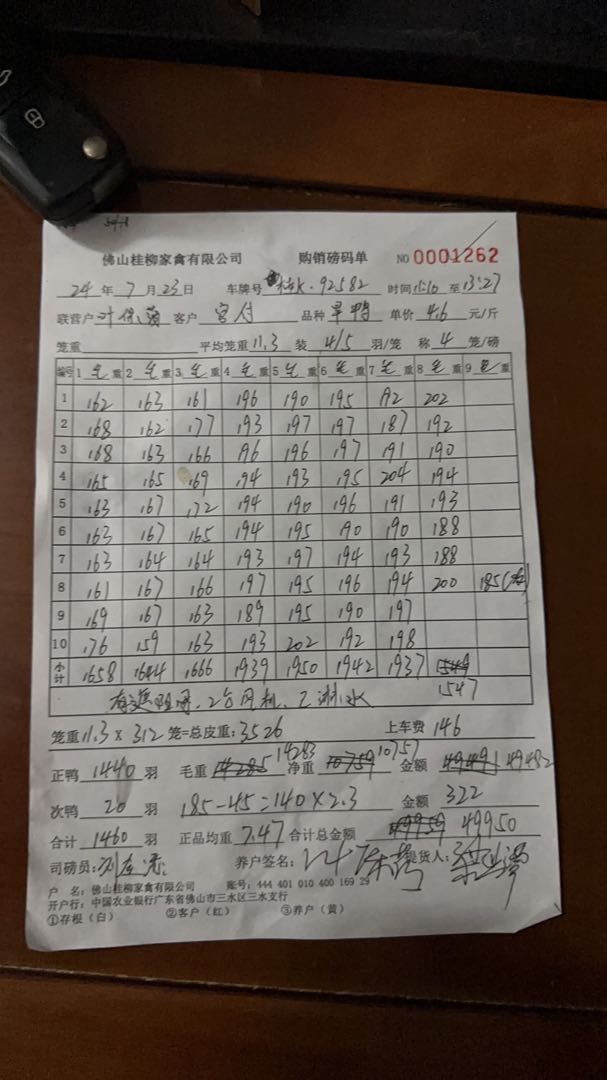 佛山桂柳家禽有限公司 购销磅码单 NO 0001262
24年7月23日 车牌号 桂K·92582 时间 11:10 至 13:27
联营户 叶保 客户 宫付 品种 旱鸭 单价 4.6 元/斤
笼重 平均笼重 11.3 装 4/5 羽/笼 称 4 笼/磅
编号 1 毛重 2 毛重 3 毛重 4 毛重 5 毛重 6 毛重 7 毛重 8 毛重 9 毛重
1 162 163 161 196 190 195 192 202
2 168 162 177 193 197 197 187 192
3 168 163 166 196 196 197 191 190
4 165 165 169 194 193 195 204 194
5 163 167 172 194 190 196 191 193
6 163 167 165 194 195 190 190 188
7 163 164 164 193 197 194 193 188
8 161 167 166 197 195 196 194 200 185
9 169 167 163 189 195 190 197
10 176 159 163 193 202 192 198
小计 1658 1644 1666 1939 1950 1942 1937 1549
1547
2台风机、已淋水
笼重 11.3 × 312 笼=总皮重: 3526 上车费 146
14283 10757
正鸭 1440 羽 毛重 14285 净重 10759 金额 49491 49482
次鸭 20 羽 185-45=140×2.3 金额 322
合计 1460 羽 正品均重 7.47 合计总金额 49959 49950
司磅员: 养户签名: 提货人:
户 名: 佛山桂柳家禽有限公司 账号: 444 401 010 400 169 29
开户行: 中国农业银行广东省佛山市三水区三水支行
①存根（白） ②客户（红） ③养户（黄）